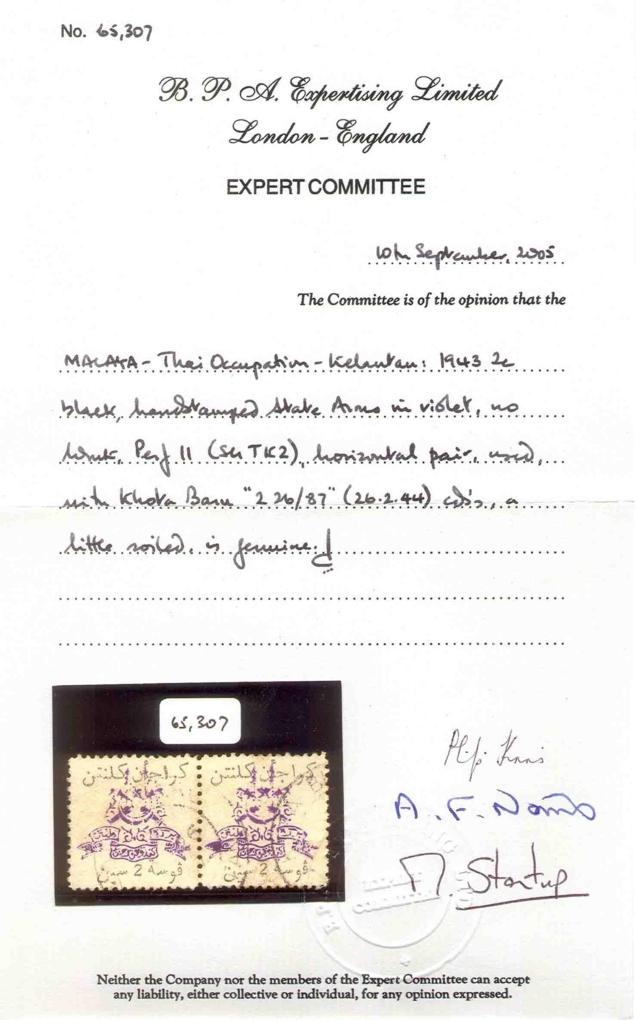 No. 65,307
B. P. A. Expertising Limited
London - England
EXPERT COMMITTEE
10th September, 2005
The Committee is of the opinion that the
MALAYA - Thai Occupation - Kelantan: 1943 2c
black, handstamped State Arms in violet, no
wmk, Perf 11 (SG TK2), horizontal pair, used,
with Khota Baru "2 26/87" (26.2.44) cds, a
little soiled, is genuine.
65,307
كراجأن كلنتن كراجأن كلنتن
ڤوسة 2 سين ڤوسة 2 سين
A. F. Norris
Startup
EXPERT
COMMITTEE
Neither the Company nor the members of the Expert Committee can accept
any liability, either collective or individual, for any opinion expressed.